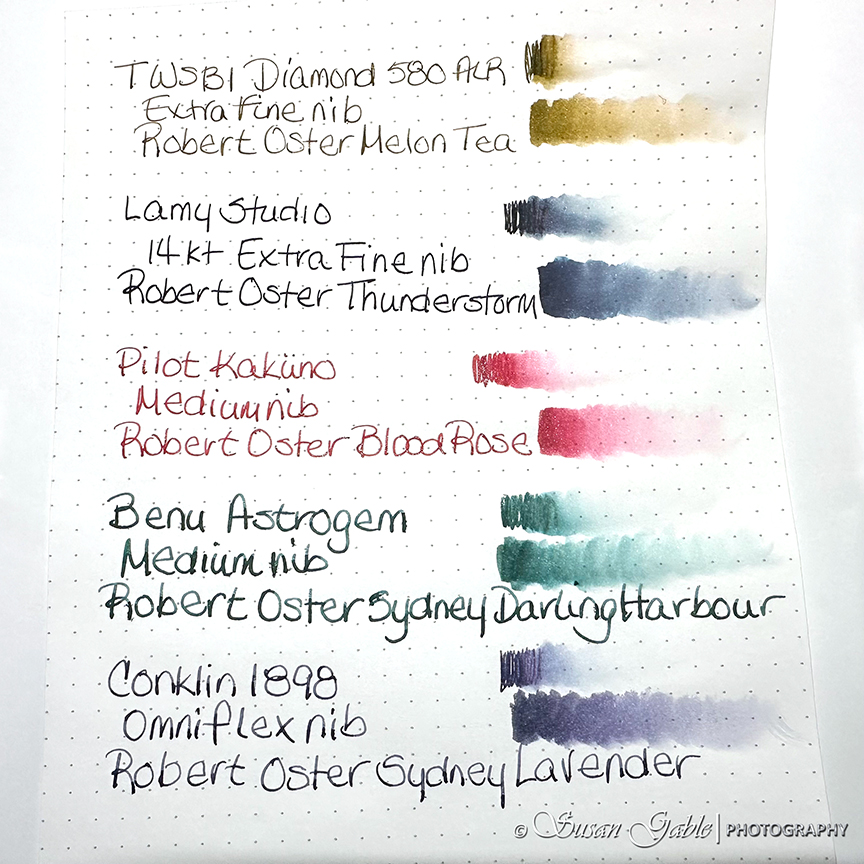 TWSBI Diamond 580 ALR
Extra Fine nib
Robert Oster Melon Tea
Lamy Studio
14kt Extra Fine nib
Robert Oster Thunderstorm
Pilot Kaküno
Medium nib
Robert Oster Blood Rose
Benu Astrogem
Medium nib
Robert Oster Sydney Darling Harbour
Conklin 1898
Omniflex nib
Robert Oster Sydney Lavender
© Susan Gable | PHOTOGRAPHY